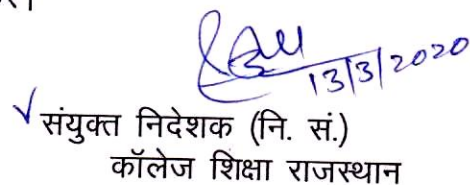 13/3/2020
संयुक्त निदेशक (नि. सं.)
कॉलेज शिक्षा राजस्थान